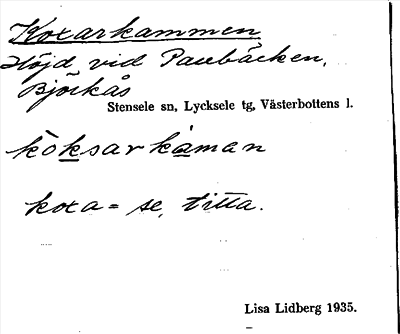 Koxarkammen
Höjd vid Paubäcken,
Björkås
Stensele sn, Lycksele tg, Västerbottens l.
kòksarkàman
koxa = se, titta.
Lisa Lidberg 1935.